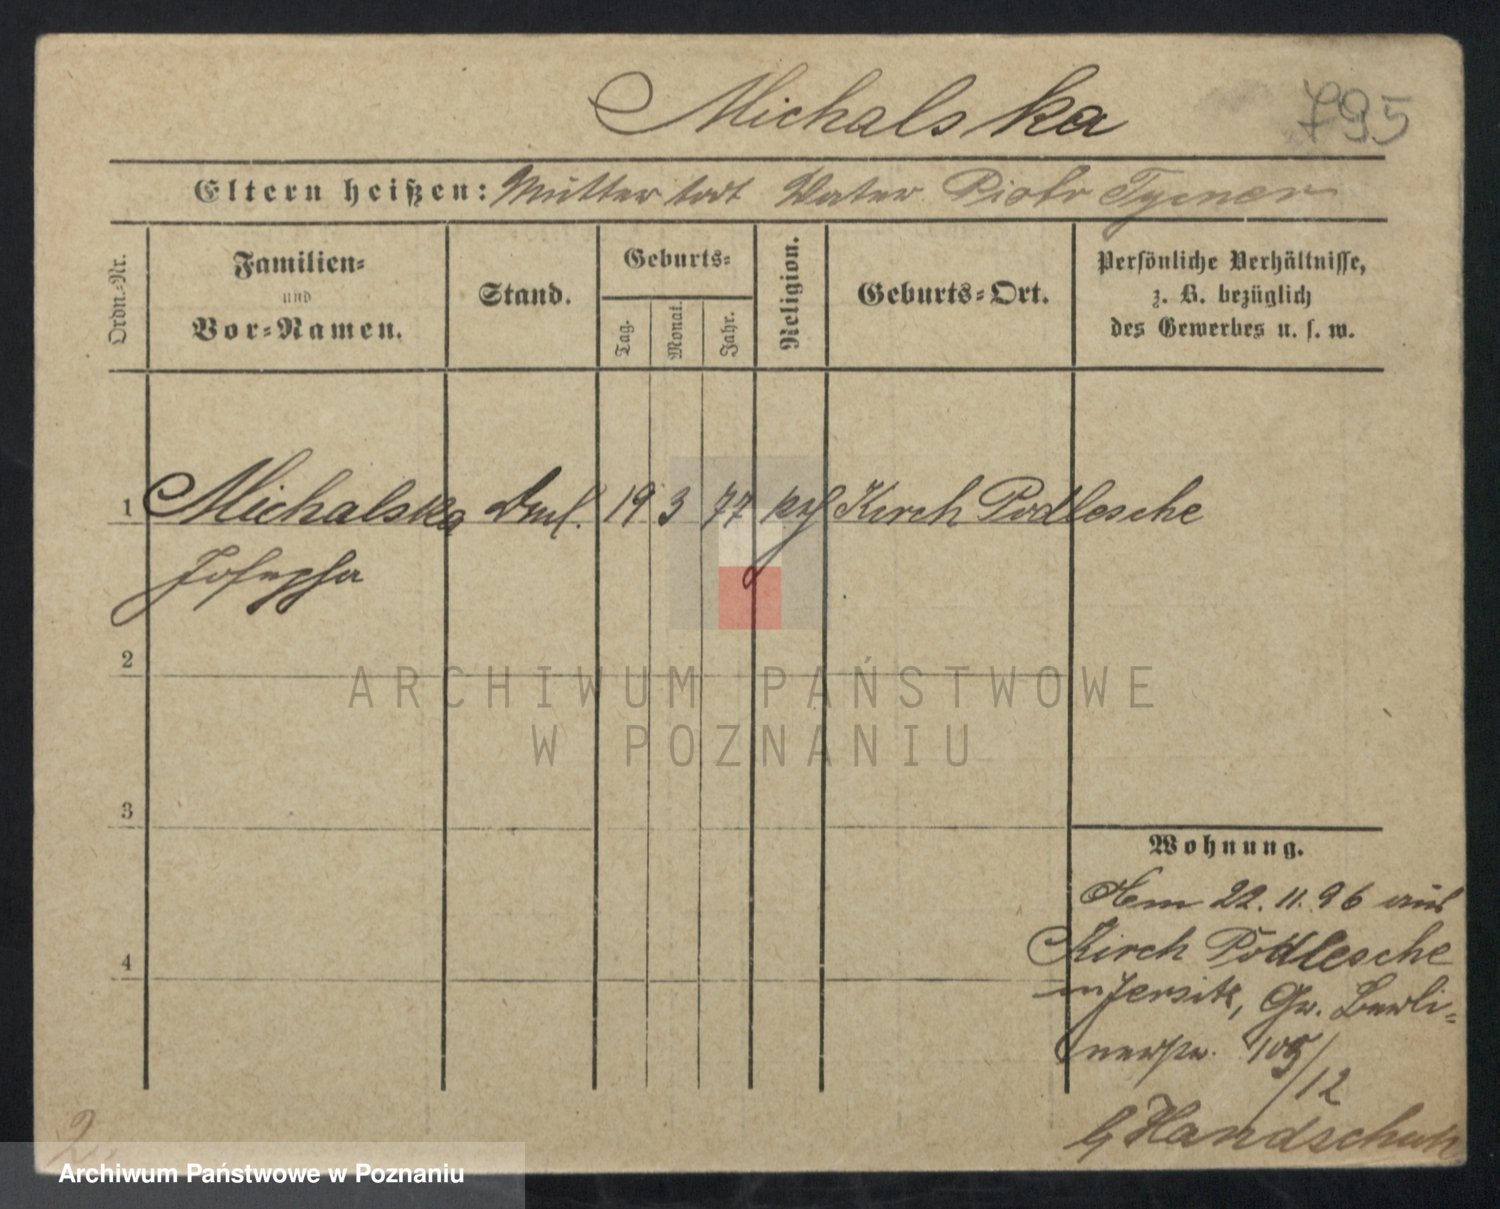 Michalska
795
Eltern heißen: Mutter tot Vater Piotr Tycner
Ordn.-Nr.
Familien-
und
Vor-Namen.
Stand.
Geburts-
Tag.
Monat.
Jahr.
Religion.
Geburts-Ort.
Persönliche Verhältnisse,
z. B. bezüglich
des Gewerbes u. s. w.
1 Michalska 19 3 77 Kirch Podlesche
Josepha
2
3
4
Wohnung.
22. 11. 96 aus
Kirch Podlesche
in Jersitz, Gr. Berli-
nerstr. 105/12
b Handschuh
2.
ARCHIWUM PAŃSTWOWE
W POZNANIU
Archiwum Państwowe w Poznaniu